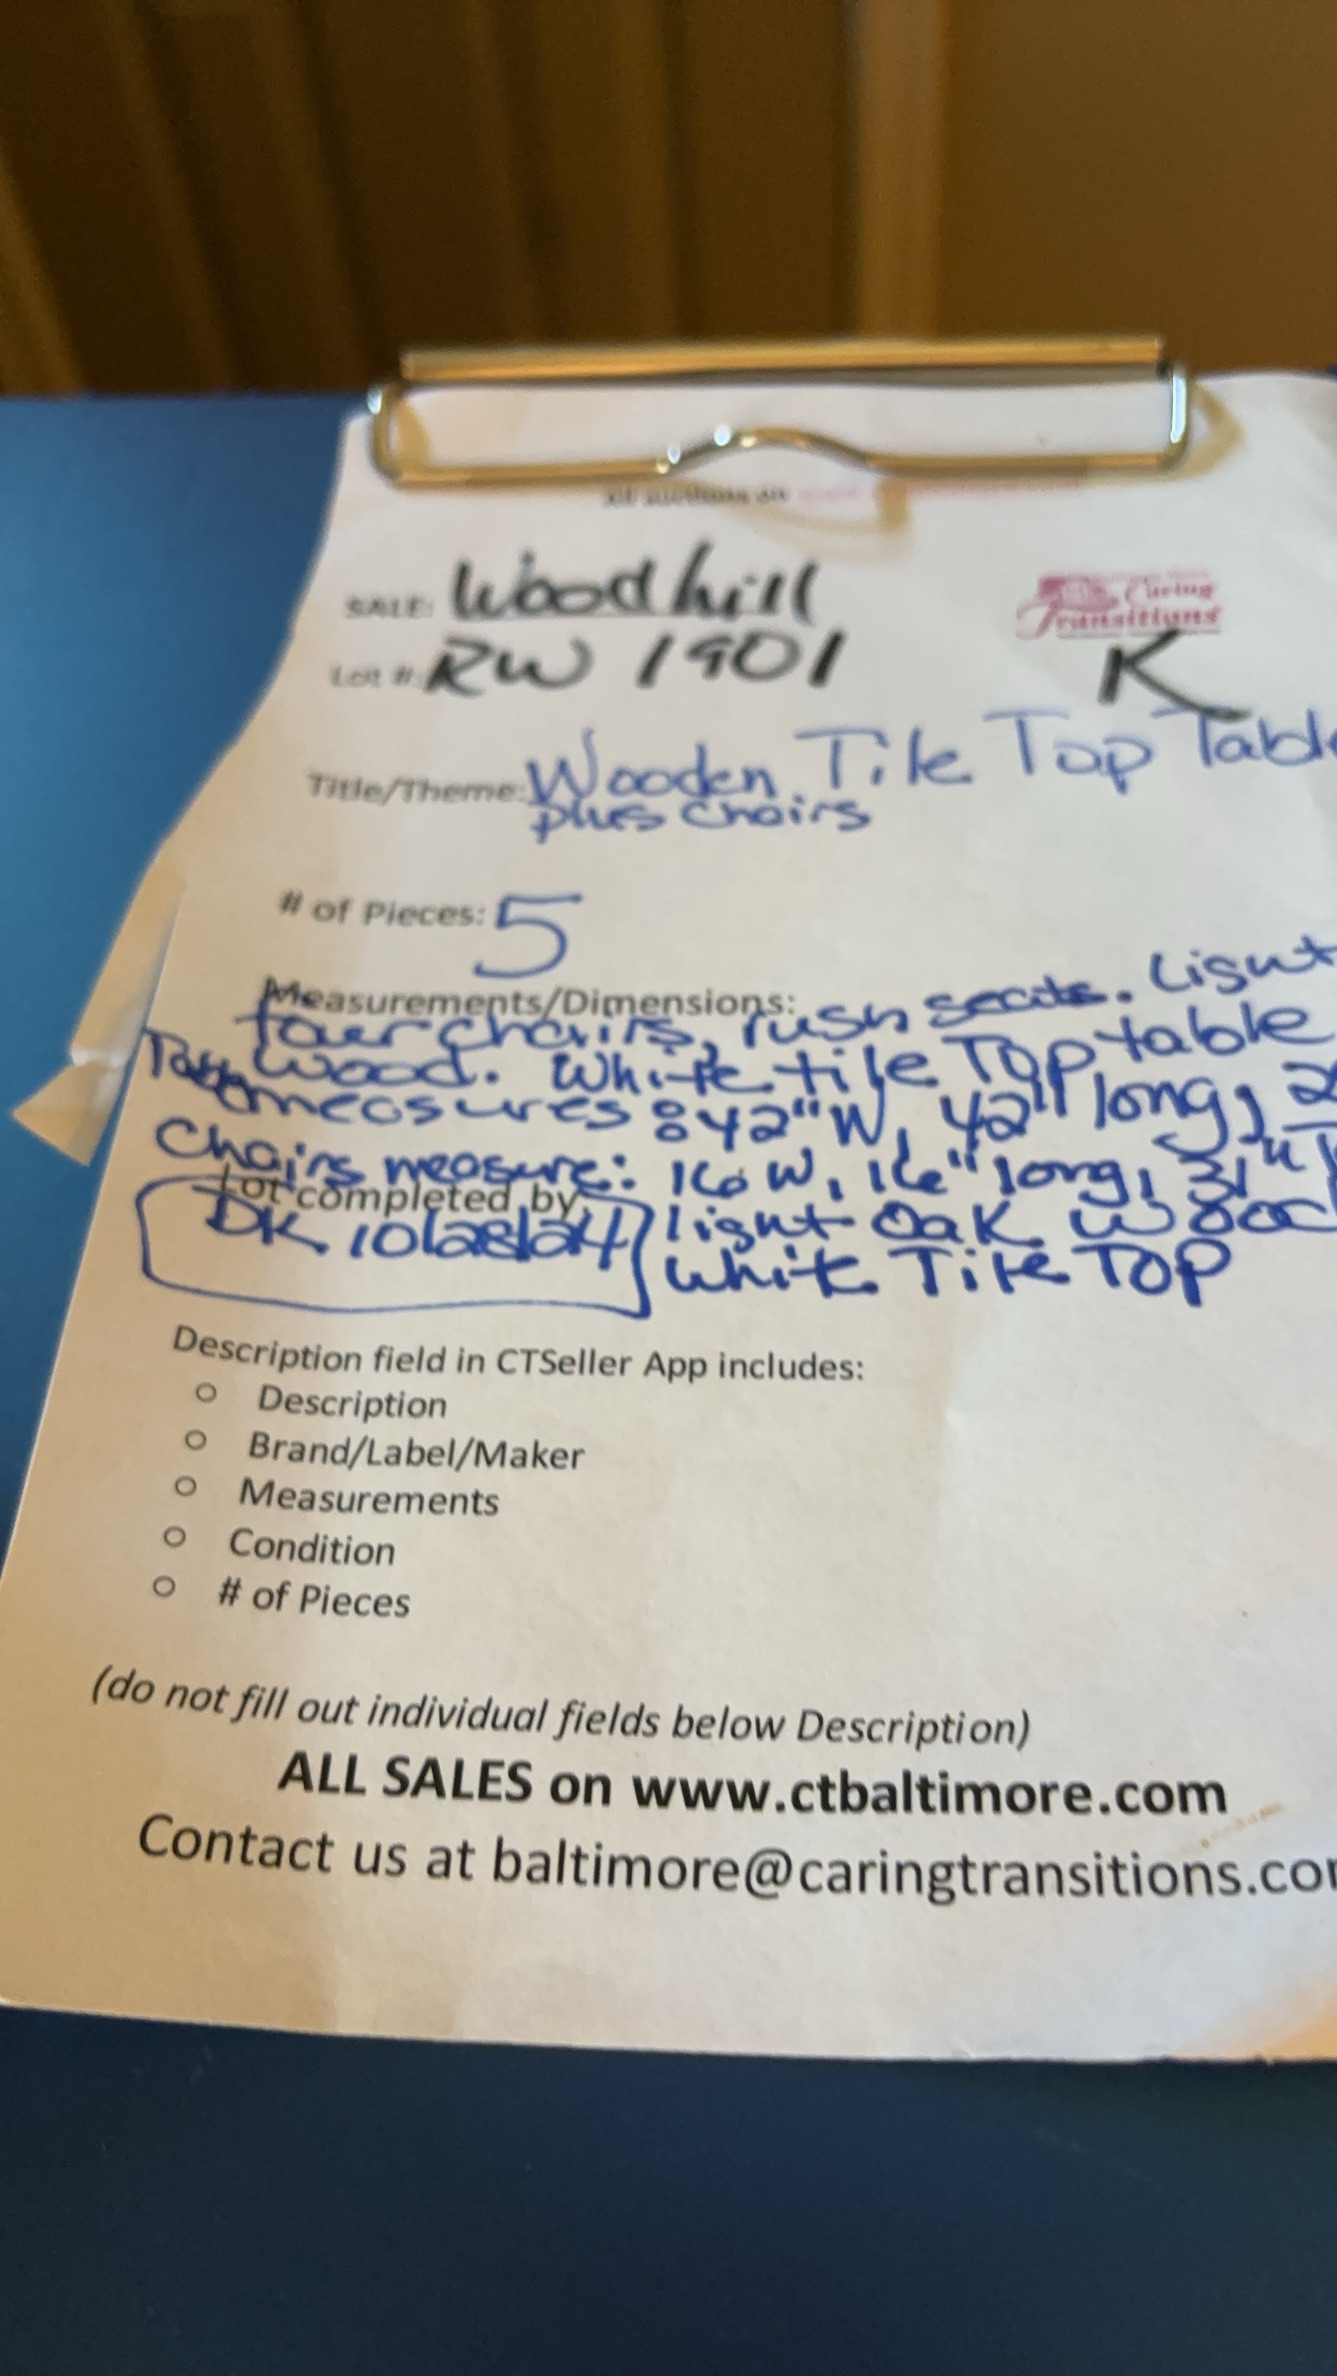 all auctions on
SALE: Woodhill
Caring
Transitions
Lot #: RW 1901
K
Title/Theme: Wooden Tile Top Table
plus chairs
# of Pieces: 5
Measurements/Dimensions:
four chairs, rush seats. Light
wood. White tile Top table
Table measures: 42"W, 42" long, 2
Chairs measure: 16 W, 16" long, 31"
Lot completed by:
DK 10/28/24
light Oak wood
white Tile TOP
Description field in CTSeller App includes:
o Description
o Brand/Label/Maker
o Measurements
o Condition
o # of Pieces
(do not fill out individual fields below Description)
ALL SALES on www.ctbaltimore.com
Contact us at baltimore@caringtransitions.co